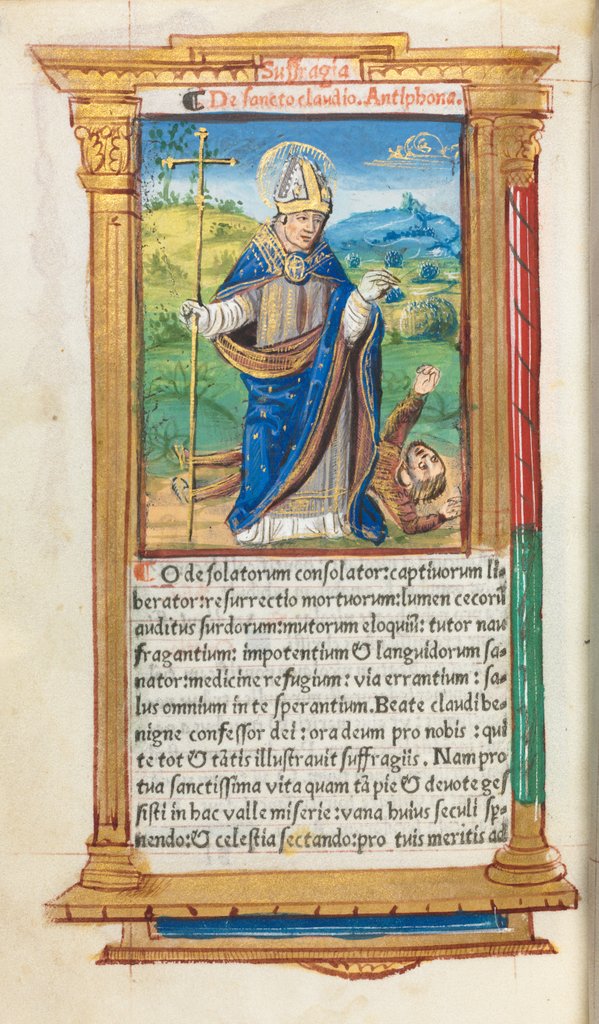 Suffragia
⸿ De sancto claudio. Antiphona.
⸿ O desolatorum consolator: captiuorum li⸗
berator: resurrectio mortuorum: lumen cecorū
auditus surdorum: mutorum eloquiū: tutor nau
fragantium: impotentium & languidorum sa⸗
nator: medicine refugium: via errantium: sa⸗
lus omnium in te sperantium. Beate claudi be⸗
nigne confessor dei: ora deum pro nobis: qui
te tot & tātis illustrauit suffragiis. Nam pro
tua sanctissima vita quam tā pie & deuote ges
sisti in hac valle miserie: vana huius seculi sp⸗
nendo: & celestia sectando: pro tuis meritis ad